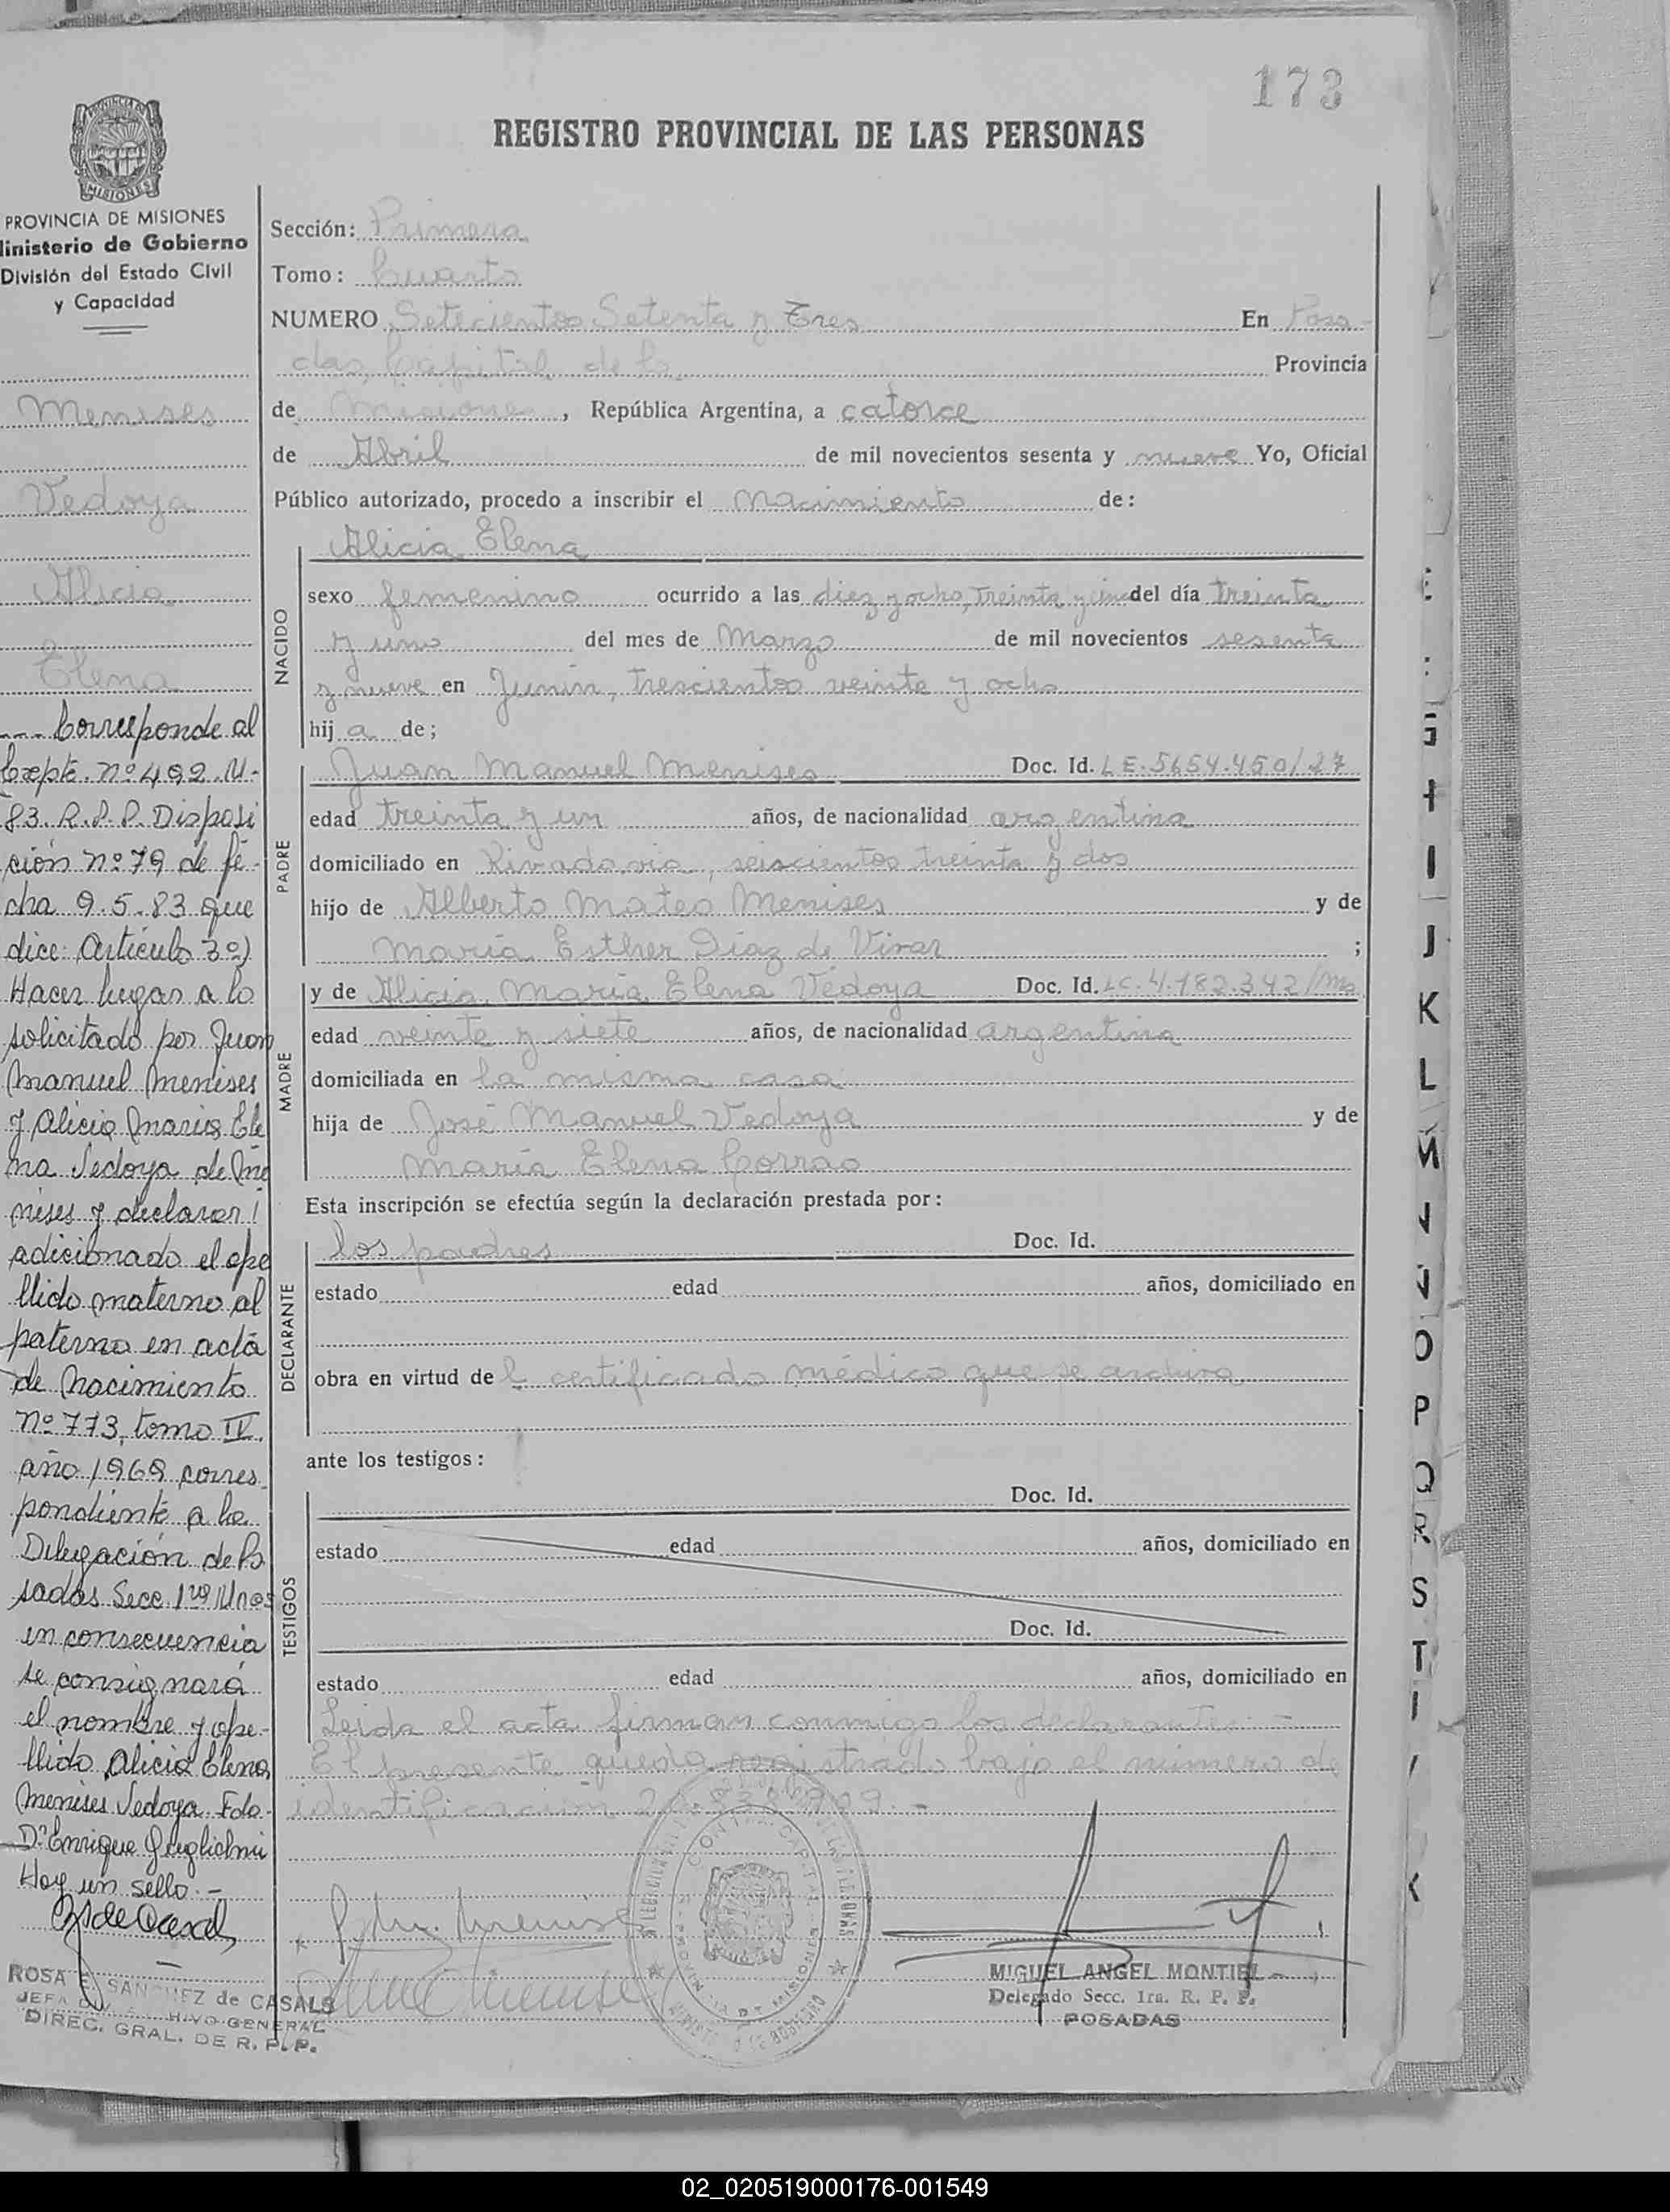 173
REGISTRO PROVINCIAL DE LAS PERSONAS
MISIONES
PROVINCIA DE MISIONES
Ministerio de Gobierno
División del Estado Civil
y Capacidad
Menises
Vedoya
Alicia
Elena
.... Corresponde al
Expte. nº 492 M-
83. R.P.P. Disposi
ción nº 79 de fe-
cha 9.5.83 que
dice: Artículo 3º)
Hacer lugar a lo
solicitado por Juan
Manuel Menises
y Alicia Maria Ele
na Vedoya de Me
nises y declarar
adicionado el ape
llido materno al
paterno en acta
de Nacimiento
nº 773, tomo IV.
año 1969 corres
pondiente a la
Delegación de Po
sadas Secc. 1ra Mnes
en consecuencia
se consignará
el nombre y ape-
llido Alicia Elena
Menises Vedoya. Fdo.
Dr Enrique Guglielmi
Hay un sello.-
ROSA E. SANCHEZ de CASALS
JEFA ARCHIVO GENERAL
DIREC. GRAL. DE R. P. P.
Sección: Primera
Tomo: Cuarto
NUMERO Setecientos Setenta y Tres En Posa-
das, Capital de la Provincia
de Misiones, República Argentina, a catorce
de Abril de mil novecientos sesenta y nueve Yo, Oficial
Público autorizado, procedo a inscribir el Nacimiento de:
NACIDO
Alicia Elena
sexo femenino ocurrido a las diez y ocho, treinta y cinco del día treinta
y uno del mes de Marzo de mil novecientos sesenta
y nueve en Junín, trescientos veinte y ocho
hij a de;
PADRE
Juan Manuel Menises Doc. Id. LE. 5654.450/27
edad treinta y un años, de nacionalidad argentina
domiciliado en Rivadavia, seiscientos treinta y dos
hijo de Alberto Mateo Menises y de
María Esther Díaz de Vivar ;
MADRE
y de Alicia María Elena Vedoya Doc. Id. LC. 4.182.342/Ms
edad veinte y siete años, de nacionalidad argentina
domiciliada en la misma casa
hija de José Manuel Vedoya y de
María Elena Corrao
Esta inscripción se efectúa según la declaración prestada por:
DECLARANTE
los padres Doc. Id.
estado edad años, domiciliado en
obra en virtud de l certificado médico que se archiva
ante los testigos:
TESTIGOS
Doc. Id.
estado edad años, domiciliado en
Doc. Id.
estado edad años, domiciliado en
Leida el acta firman conmigo los declarantes.-
El presente queda registrado bajo el número de
identificación
MIGUEL ANGEL MONTIEL
Delegado Secc. 1ra. R. P. P.
POSADAS
J
K
L
O
P
Q
R
S
T
02_020519000176-001549